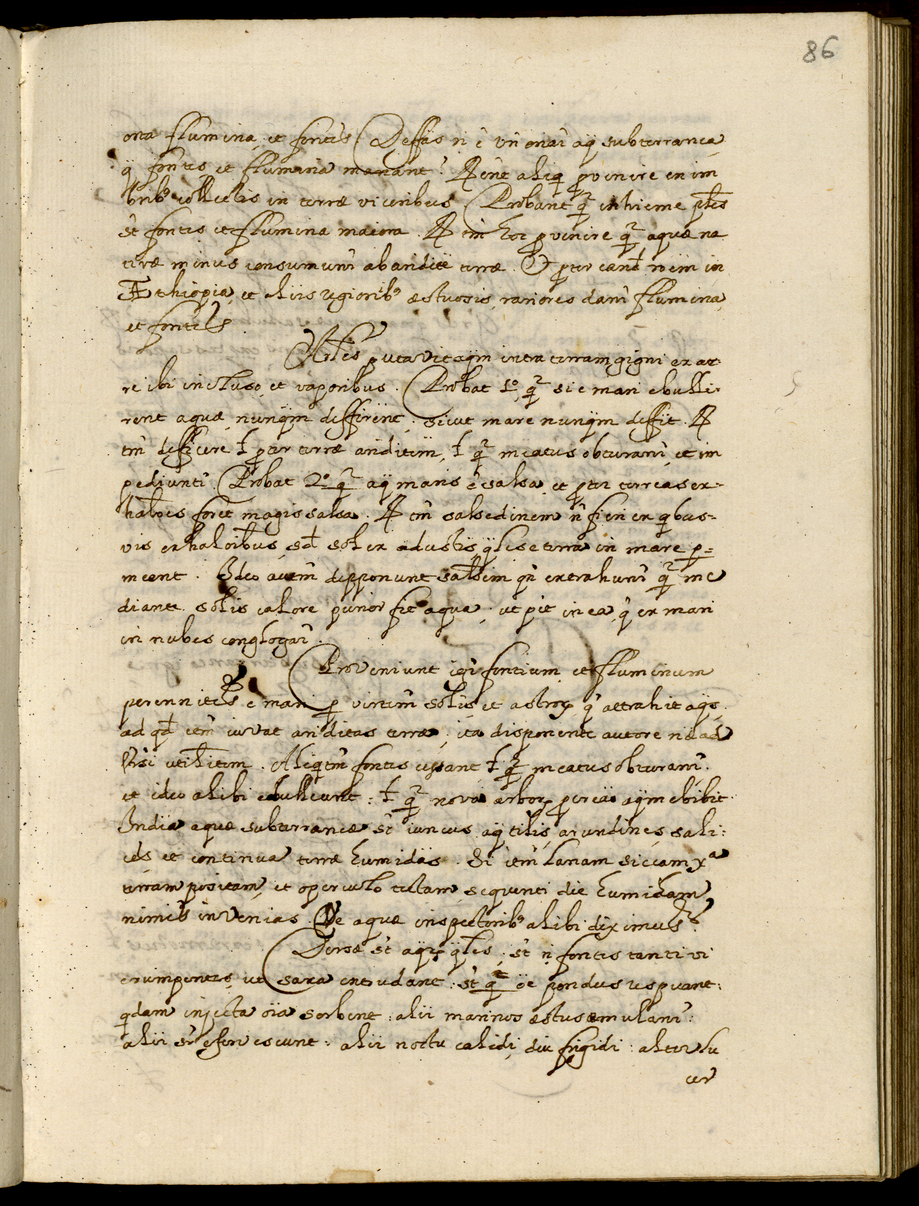 86
orta flumina, et fontes Deffiis n ē vn̄ onāi aq̄ subterranea,
q̄ fontes et flumina manant. R ent aliq̄ pvenire ex im
brib9 collectis in terræ visceribus Probant q̄ in hieme ptes
st̄ fontes et flumina maiora. R tm̄ hoc pvenire q̄ aquæ na
tivæ minus consumunt̄ ab aridite terræ. Et pter cand nem in
Æthiopia, et aliis regioribus æstuosis, rariores dant̄ flumina,
et fontes.
Ales putavit aqm intra terram gigni ex ae-
re ibi incluso, et vaporibus. Probat 1º q̄ si e mari ebulli-
rent aquæ, nunqm deffirent, sicut mare nunqm deffit. R
tm̄ defficere ł pter terræ ariditem, ł q̄ meatus obturant̄, et im
pediunt̄. Probat 2º q̄ aq̄ maris ē salsa, et pter terreas ex-
halões foret magis salsa. R tm̄ salsedinem n̄ fieri ex qbus-
vis exhalõibus, sd̄ sol ex adustis qles e terra in mare p-
meent. Ideo autm depponunt salsem qn̄ extrahunt̄ q̄ me
diante solis calore purior fit aqua, ut pt in ea, q̄ ex mari
in nubes conglogat̄.
Proveniunt igr̄ fontium et fluminum
perennites e mari p virtm solis et astror̄ q̄ attrahit aq̄s
ad qd̄ etm iuvat ariditas terræ, ita disponente autore n ad
Vsi utilitem. Aliqtm fontes cessant ł q̄ meatus obturant̄.
et ideo alibi ebulliunt: ł q̄ nova arbor pcia aqm ebibit.
India aquæ subterraneæ st̄ iuncus aqtilis, arundines, sali:
ces, et continua terræ humidas. Si etm lanam siccam xa
terram positam, et operculo tectam seqventi die humidam
nimis invenias. De aquæ inspectorib9 alibi diximus.
Diversæ st̄ aqr̄ qles, st̄ n̄ fontes tanti vi
erumpentes, ut saxa extrudant: st̄ q̄ oē pondus respuant:
qdam injecta oia sorbent: alii marinos æstus emulant̄:
alii st̄ efferiscunt: alii noctu calidi, diu frigidi: alter lu
cer